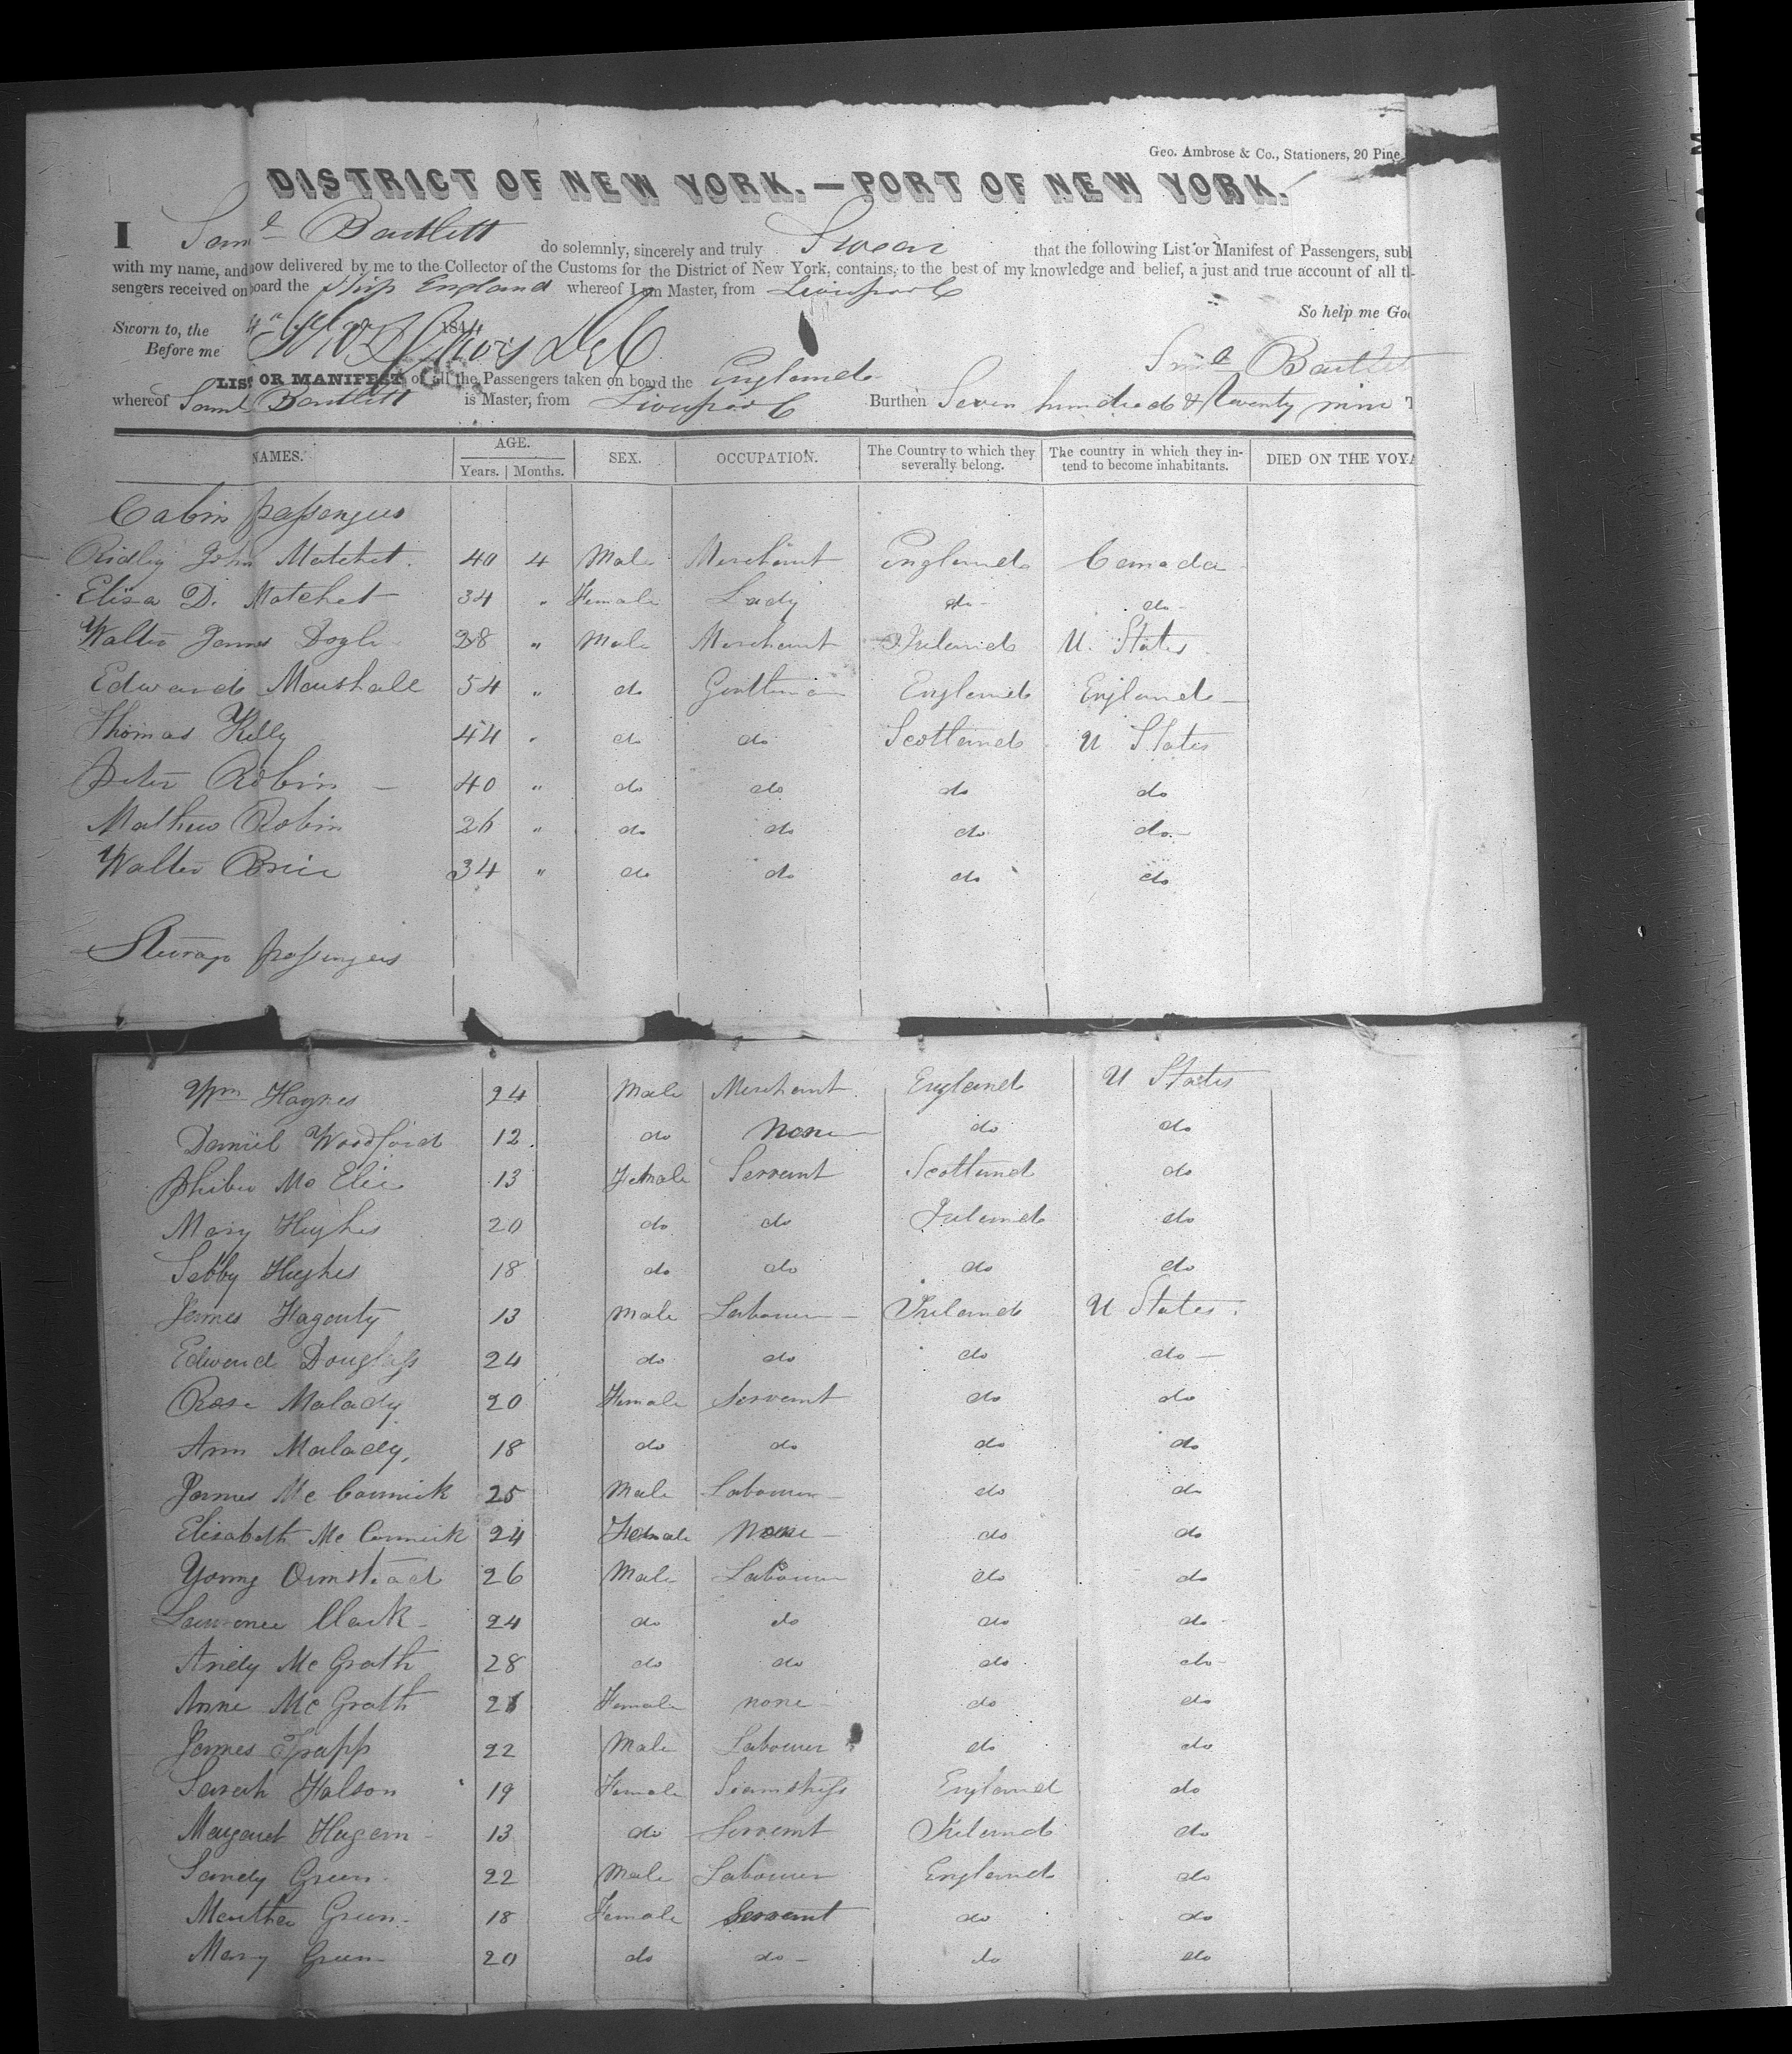 Geo. Ambrose & Co., Stationers, 20 Pine
DISTRICT OF NEW YORK.—PORT OF NEW YORK.
I Saml Bartlett do solemnly, sincerely and truly Swear that the following List or Manifest of Passengers, sub
with my name, and now delivered by me to the Collector of the Customs for the District of New York, contains, to the best of my knowledge and belief, a just and true account of all th
sengers received on board the Ship England whereof I am Master, from Liverpool
So help me Go
Sworn to, the 4th 1844
Before me
Saml Bartlett
LIST OR MANIFEST of all the Passengers taken on board the England
whereof Saml Bartlett is Master, from Liverpool Burthen Seven hundred & twenty nine T
NAMES. AGE. Years. Months. SEX. OCCUPATION. The Country to which they severally belong. The country in which they intend to become inhabitants. DIED ON THE VOYA
Cabin passengers
Ridley John Matchet. 40 4 Male Merchant England Canada
Eliza D. Matchet 34 " Female Lady do do
Walter James Doyle 28 " Male Merchant Ireland U. States
Edward Marshall 54 " do Gentleman England England
Thomas Kelly 44 " do do Scotland U States
Peter Robin 40 " do do do do
Mathew Robin 26 " do do do do
Walter Brice 34 " do do do do
Steerage passengers
Wm Haynes 24 Male Merchant England U States
Daniel Woodford 12 do None do do
Phibe Mc Elie 13 Female Servant Scotland do
Mary Hughes 20 do do Ireland do
Sebby Hughes 18 do do do do
James Hagerty 13 Male Labourer Ireland U States
Edward Douglass 24 do do do do
Rose Malady 20 Female Servant do do
Ann Malady 18 do do do do
James Mc Cormick 25 Male Labourer do do
Elizabeth Mc Cormick 24 Female None do do
Young Armstead 26 Male Labourer do do
Lawrence Clark 24 do do do do
Andy Mc Grath 28 do do do do
Anne Mc Grath Female none do do
James Trapp 22 Male Labourer do do
Sarah Halson 19 Female Seamstress England do
Margaret Hagern 13 do Servant Ireland do
Sandy Green 22 Male Labourer England do
Martha Green 18 Female Servant do do
Mary Green 20 do do do do